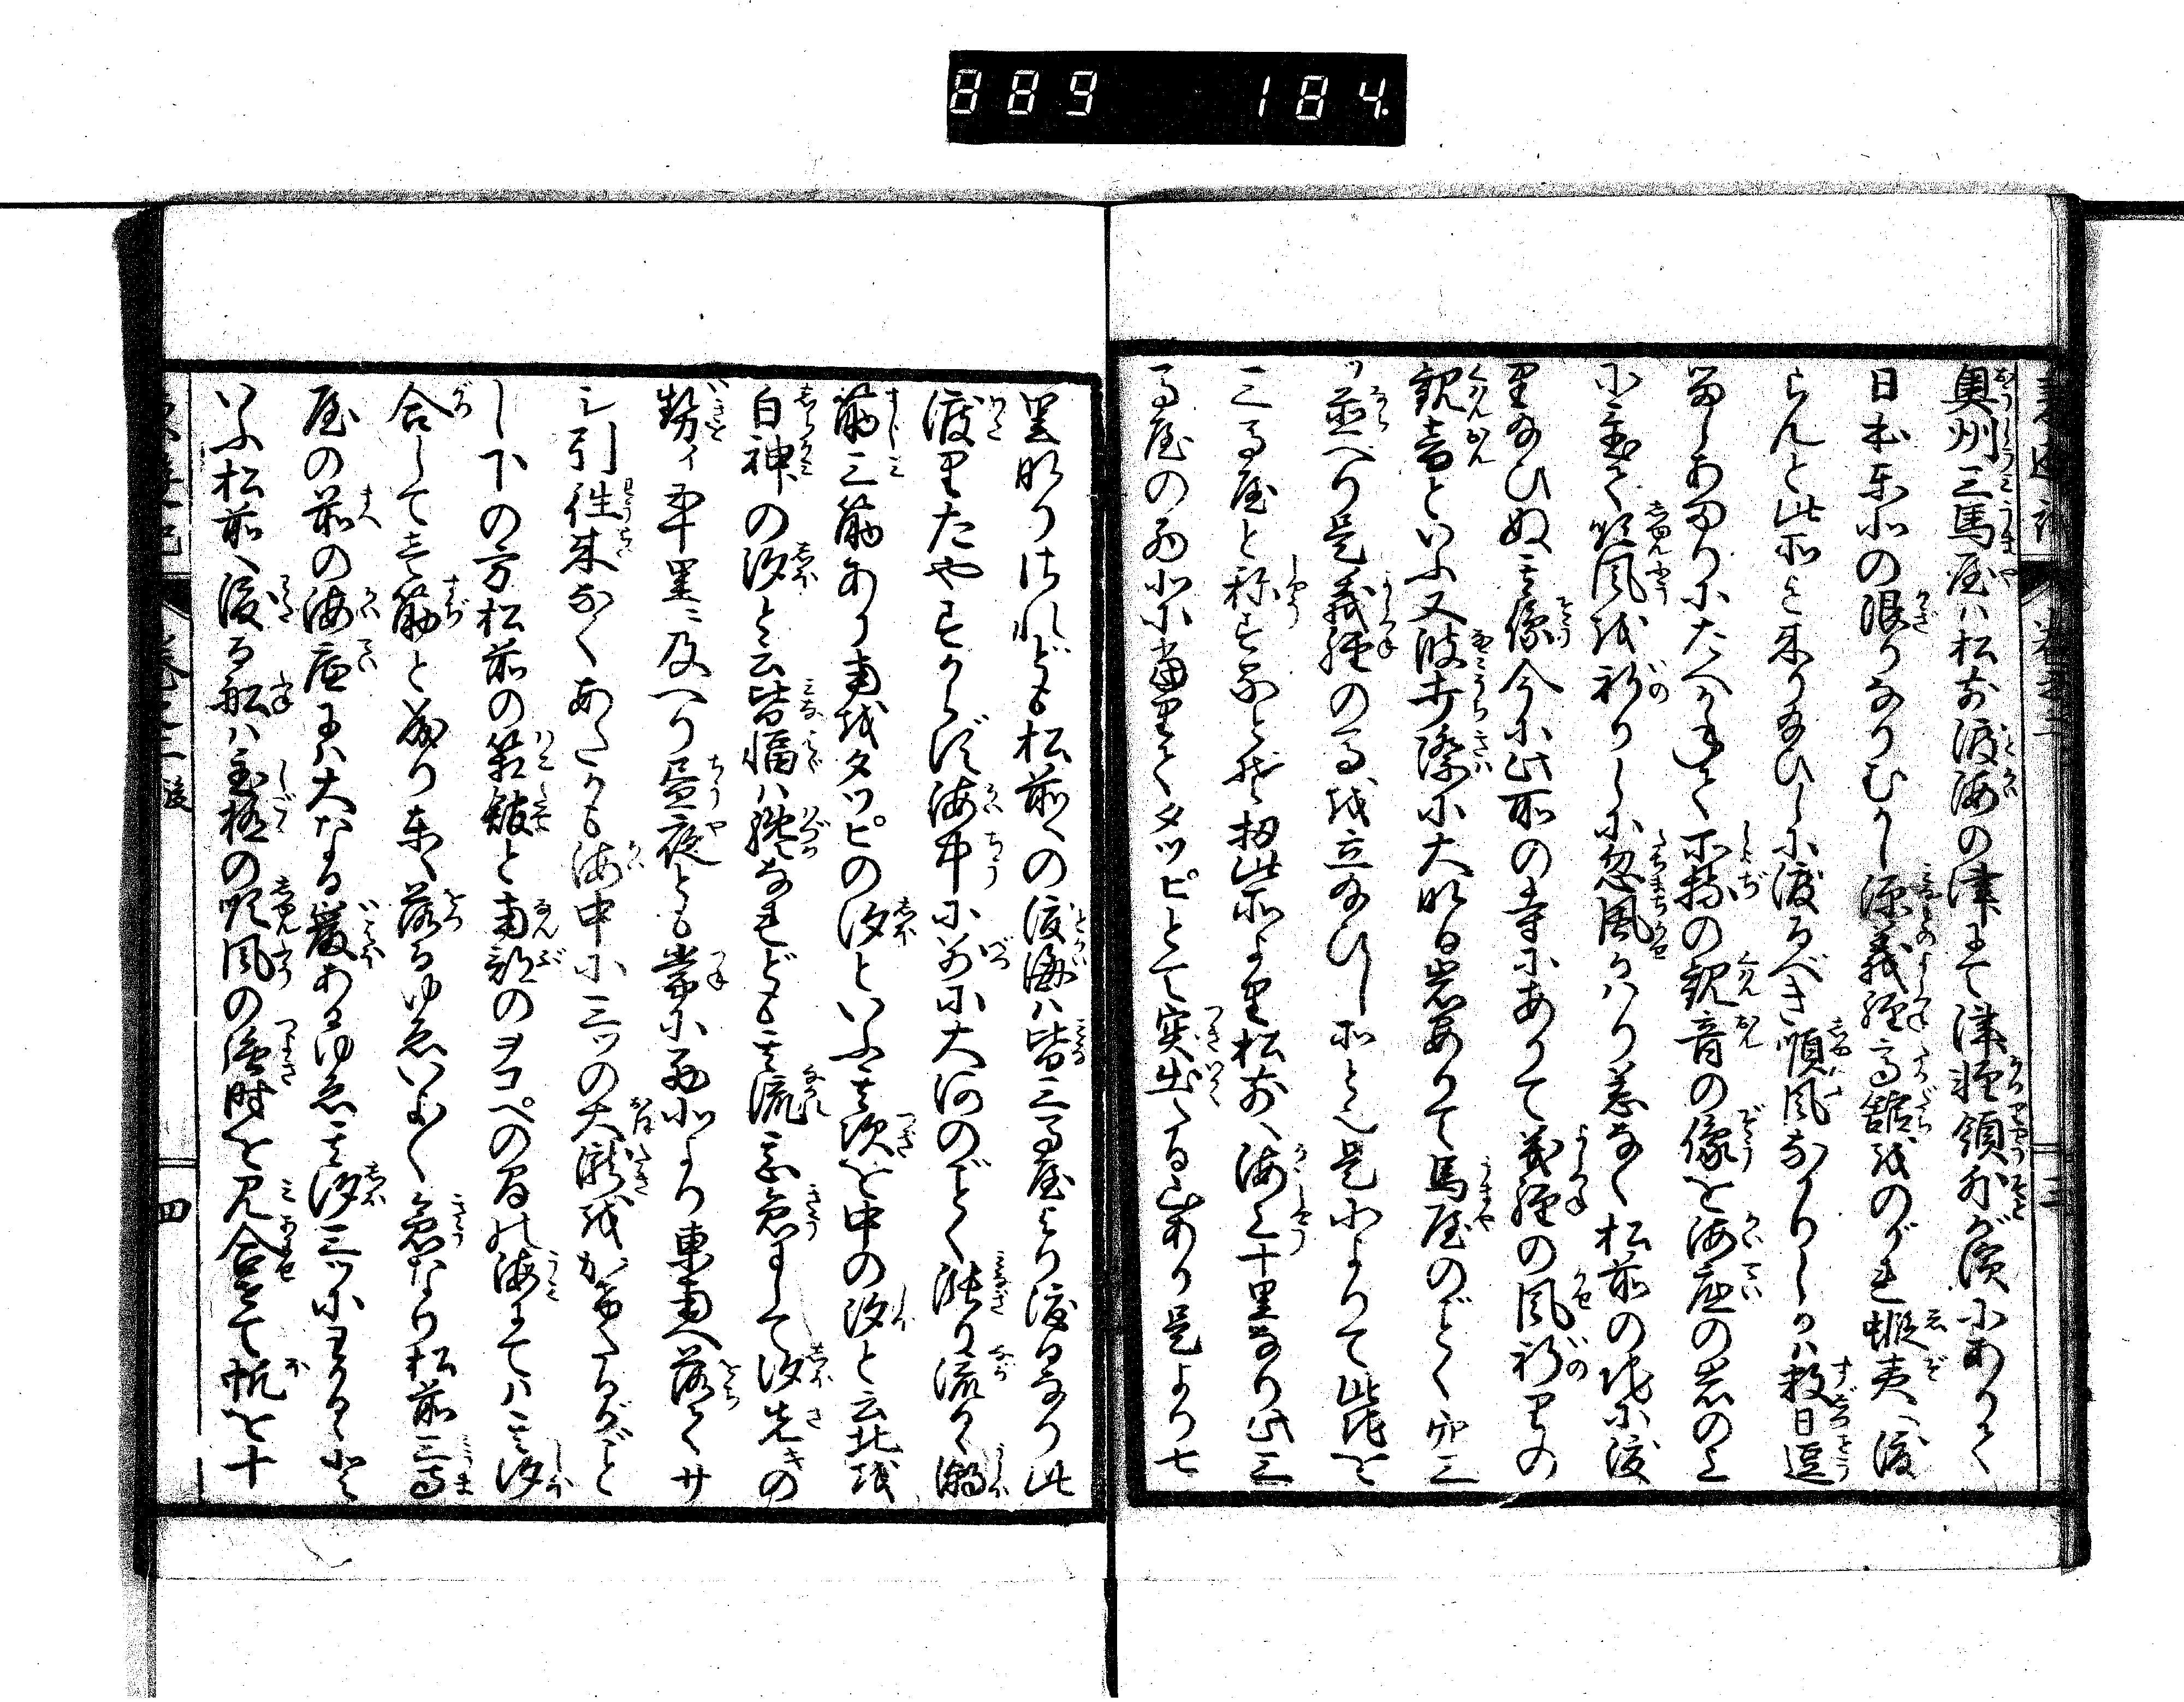 889 184.
奥州三馬屋ハ松前渡海の津にて津軽領外が濱にありて
日本東北の限りなりむかし源義經高舘をのがれ蝦夷へ渡
らんと此所迄来り給ひしに渡るべき順風なかりしかハ数日逗
留しあまりにたへかねて所持の観音の像を海底の岩の上
に置て順風を祈りしに忽風かハり恙なく松前の地に渡
り給ひぬ其像今に此所の寺にありて義經の風祈りの
観音といふ又波打際に大なる岩ありて馬屋のごとく穴三
ツ並べり是義經の馬を立給ひし所と也是によりて此地を
三馬屋と称するとぞ扨此所より松前へ海上十里なり此三
馬屋の西北に當りてタツピとて突出たる山あり是より七
里なりされども松前への渡海ハ皆三馬屋より渡るなり此
渡りたやすからず海中に別に大河のごとく漲り流るゝ潮
筋三筋あり南をタツピの汐といふ其次を中の汐と云北を
白神の汐と云皆幅ハ僅なれども其流急にして汐先きの
勢ィ五十里に及べり昼夜とも常に西北より東南へ落てサ
シ引往来なくあたかも海中に三ツの大瀧をかけたるがごと
し下の方松前の箱舘と南部のヲコペの間の海にてハ其汐
合して壱筋と成り東へ落るゆゑいよ〱急なり松前三馬
屋の前の海底にハ大なる巌あるゆゑ其汐三ツにわかるゝと
いふ松前へ渡る船ハ至極の順風の強き時を見合せて帆を十
巻之二
三
巻之二後
四